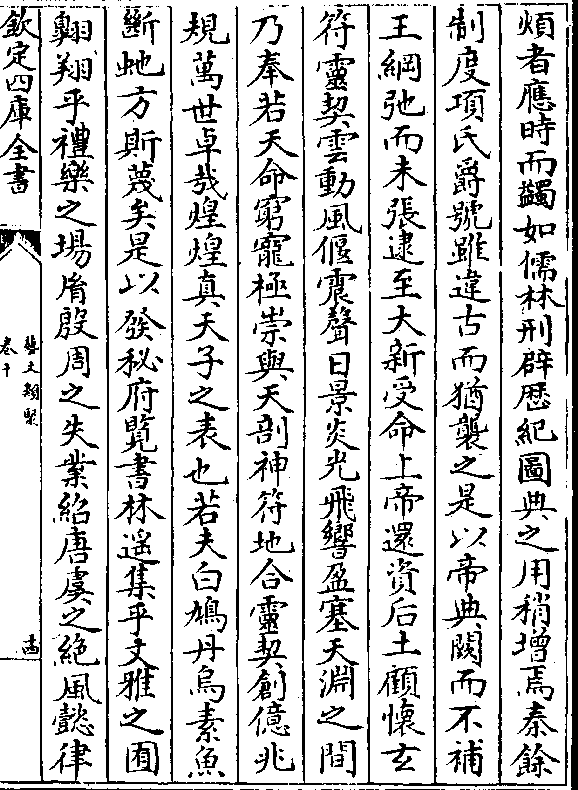 煩者應時而蠲如儒林刑辟歴紀圖典之用稍增焉秦餘
制度項氏爵號雖違古而猶襲之是以帝典闕而不補
王綱弛而未張逮至大新受命上帝還資后土顧懷玄
符靈契雲動風偃震聲日景炎光飛響盈塞天淵之間
乃奉若天命窮寵極崇與天剖神符地合靈契創億兆
規萬世卓哉煌煌真天子之表也若夫白鳩丹烏素魚
斷虵方斯蔑矣是以發秘府覽書林遥集乎文雅之囿
翺翔乎禮樂之場胤殷周之失業紹唐虞之絶風懿律
欽定四庫全書
藝文類聚
卷十
十四